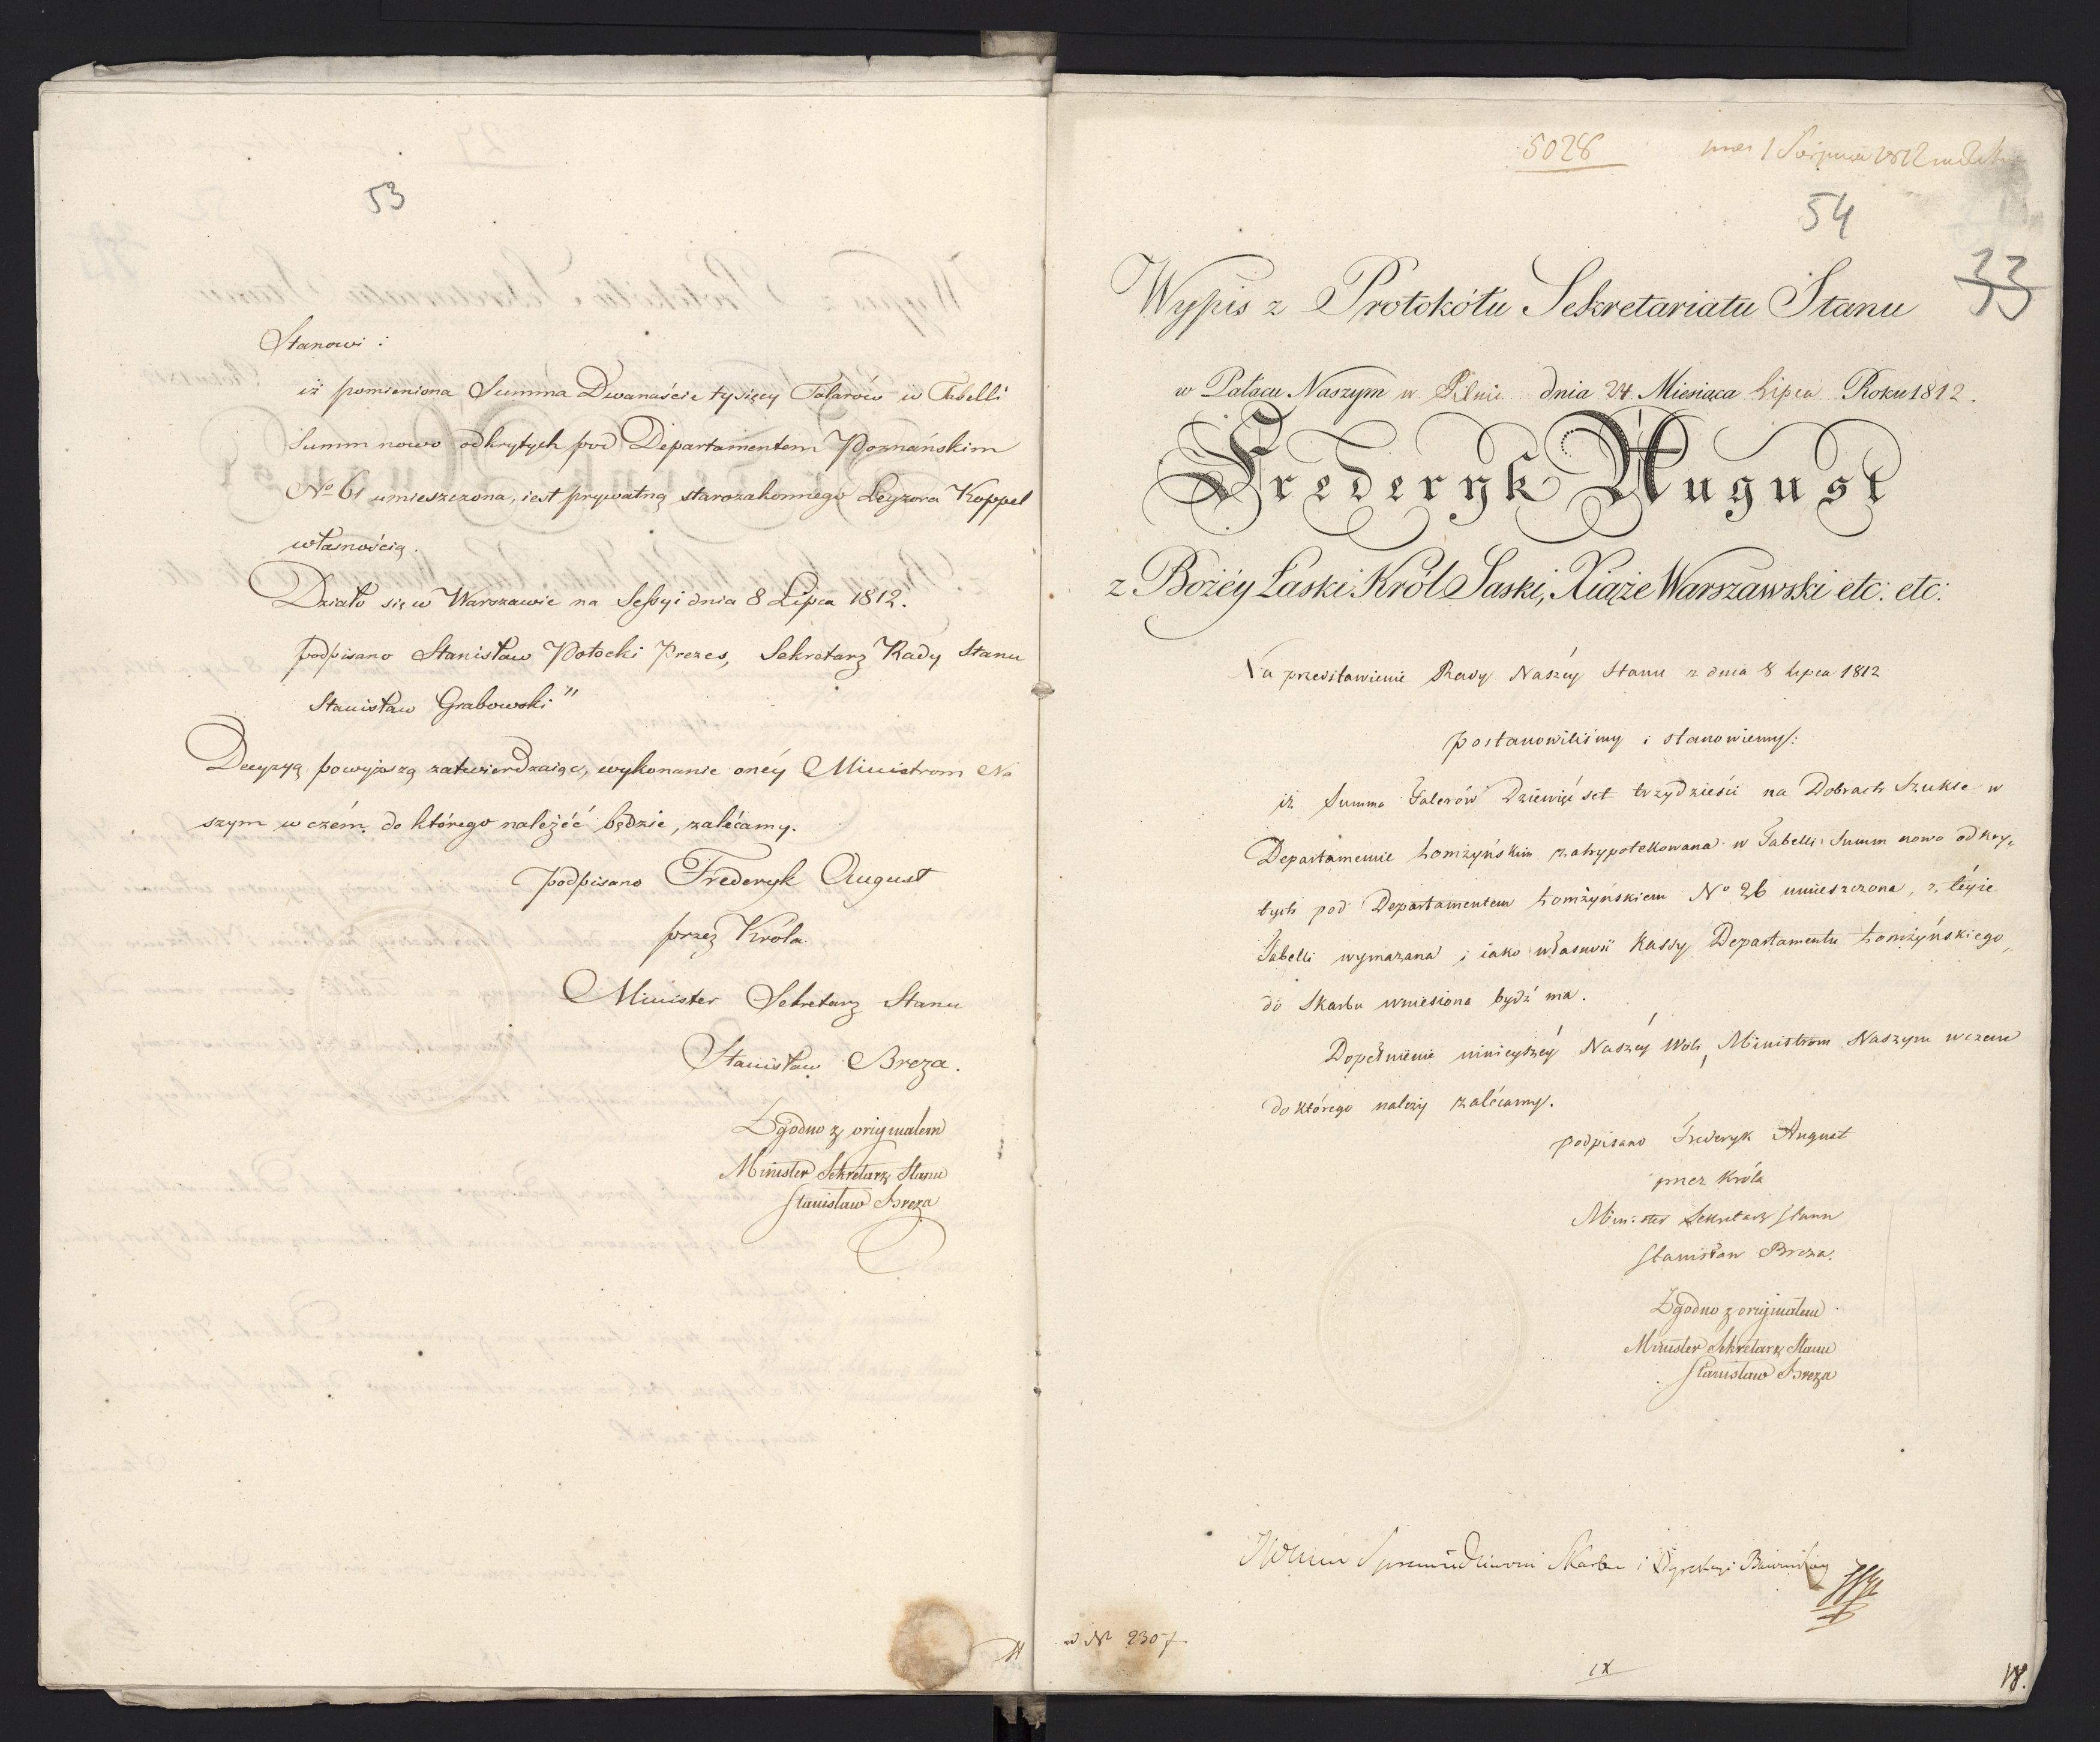 53
Stanowi :
iż pomieniona Summa Dwanaście tysięcy Talarów w Tabelli
Summ nowo odkrytych pod Departamentem Poznańskim
No 61 umieszczona, iest prywatną starozakonnego Leyzora Koppel
własnością.
Działo się w Warszawie na Sessyi dnia 8 Lipca 1812.
podpisano Stanisław Potocki Prezes, Sekretarz Rady Stanu
Stanisław Grabowski"
Decyzyą powyższą zatwierdzaiąc, wykonanie onéy Ministrom Na
szym w czém do którego należéć będzie, zalécamy.
podpisano Frederyk August
przez Króla
Minister Sekretarz Stanu
Stanisław Breza.
Zgodno z oryginałem
Minister Sekretarz Stanu
Stanisław Breza
5028
1 Sierpnia 1812
54
33
Wypis z Protokółu Sekretariatu Stanu
w Pałacu Naszym w Pilnic dnia 24 Miesiąca Lipca Roku 1812.
Frederyk August
z Bożéy Łaski Król Saski, Xiąże Warszawski etc: etc:
Na przedstawienie Rady Naszéy Stanu z dnia 8 Lipca 1812
postanowiliśmy i stanowiemy:
iż Summa Talerów Dziewięćset trzydzieści na Dobrach Szukle w
Departamencie Łomżyńskim zahypotekowana w Tabelli Summ nowo odkry-
tych pod Departamentem Łomżyńskiem No 26 umieszczona, z téyże
Tabelli wymazana i iako własność Kassy Departamentu Łomżyńskiego,
do Skarbu wniesiona bydź ma.
Dopełnienie ninieyszéy Naszéy Woli, Ministrom Naszym w czem
do którego należy zalécamy.
podpisano Frederyk August
przez Króla
Minister Sekretarz Stanu
Stanisław Breza.
Zgodno z oryginałem
Minister Sekretarz Stanu
Stanisław Breza
Skarbu i Dyrekcyi
w No 2307.
IX